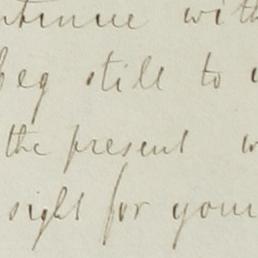 ntinue with
beg still to
the present
sight for your